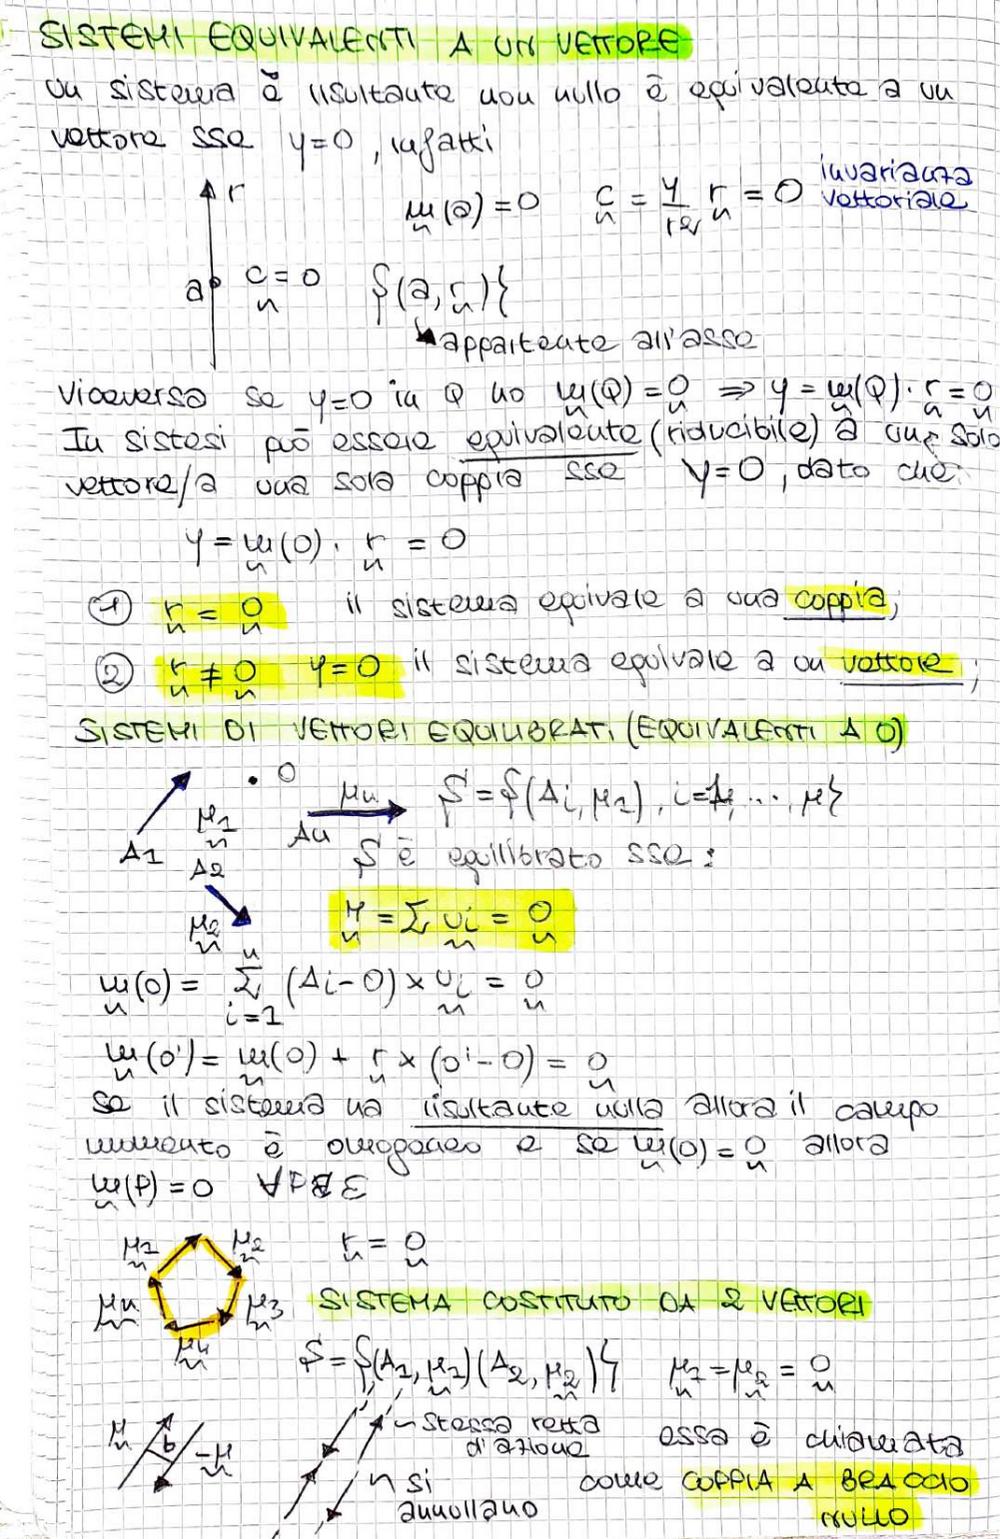 SISTEMI EQUIVALENTI A UN VETTORE
Un sistema è risultante non nullo è equivalente a un
vettore sse γ=0, infatti
r
m(a)=0 c = γ/r² r = 0 invarianza
vettoriale
a c=0 S{(a,r)}
appartente all'asse
Viceversa se γ=0 in Q ho m(Q)=0 ⇒ γ=m(Q)·r=0
In sistesi può essere equivalente (riducibile) a un solo
vettore/a una sola coppia sse γ=0, dato che:
γ=m(O)· r = 0
① r = 0 il sistema equivale a una coppia;
② r ≠ 0 γ=0 il sistema equivale a un vettore;
SISTEMI DI VETTORI EQUILIBRATI (EQUIVALENTI A 0)
O
μ1 μn S={(Ai,μ1), i=1, ..., μ}
A1 An
A2 S è equilibrato sse:
μ2 r = Σ ui = 0
m(O) = Σ n i=1 (Ai-O) × ui = 0
m(O') = m(O) + r × (O'-O) = 0
se il sistema ha risultante nulla allora il campo
momento è omogeneo e se m(O) = 0 allora
m(P)=0 ∀P∈E
μ1 μ2 r = 0
μn μ3 SISTEMA COSTITUTO DA 2 VETTORI
μ4
S={(A1,μ1)(A2,μ2)} μ1=μ2=0
μ b -μ stessa retta
d'azione essa è chiamata
si come COPPIA A BRACCIO
annullano NULLO